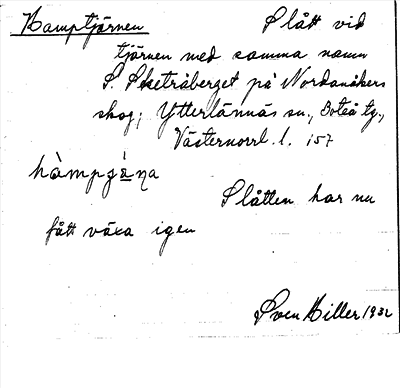 Hamptjärnen Slått vid
tjärnen med samma namn
S. Sketråberget på Nordanåkers
skog; Ytterlännäs sn., Boteå tg.,
Västernorrl. l. 157
hàmpgæ̀ṇa
Slåtten har nu
fått växa igen
Sven Hiller 1932